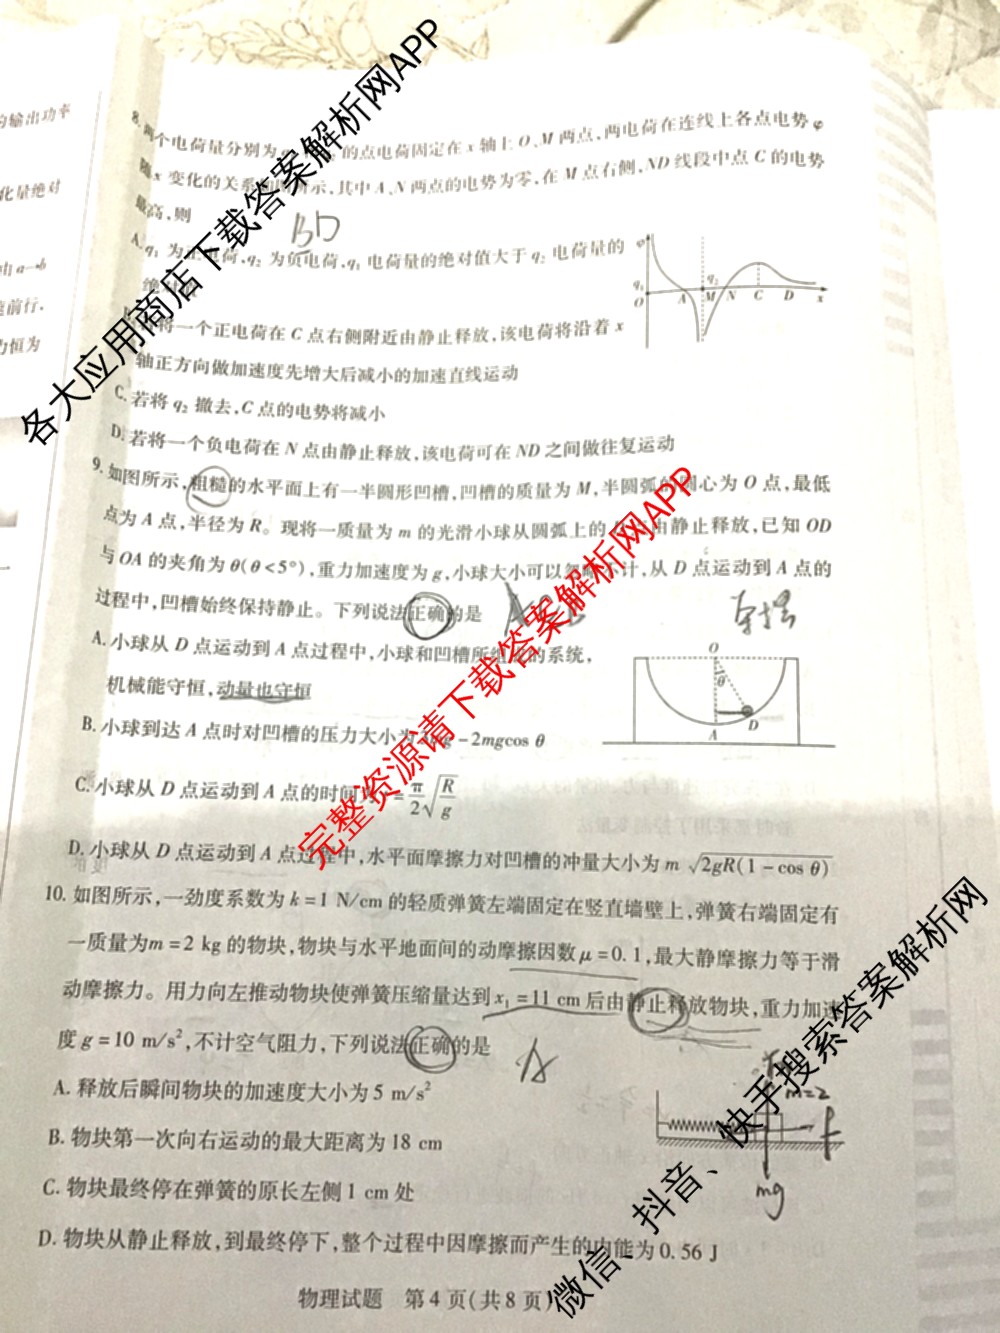 的输出功率
化量绝对
由a→b
速前行,
力恒为
8.两个电荷量分别为 的点电荷固定在x轴上O、M两点,两电荷在连线上各点电势φ
随x变化的关系如图所示,其中A、N两点的电势为零,在M点右侧,ND线段中点C的电势
最高,则
BD
A.q₁为正电荷,q₂为负电荷,q₁电荷量的绝对值大于q₂电荷量的
绝对值
φ
q₁ q₂
O A M N C D x
将一个正电荷在C点右侧附近由静止释放,该电荷将沿着x
轴正方向做加速度先增大后减小的加速直线运动
C.若将q₂撤去,C点的电势将减小
D.若将一个负电荷在N点由静止释放,该电荷可在ND之间做往复运动
9.如图所示,粗糙的水平面上有一半圆形凹槽,凹槽的质量为M,半圆弧的圆心为O点,最低
点为A点,半径为R。现将一质量为m的光滑小球从圆弧上的 由静止释放,已知OD
与OA的夹角为θ(θ<5°),重力加速度为g,小球大小可以忽略不计,从D点运动到A点的
过程中,凹槽始终保持静止。下列说法正确的是
A.小球从D点运动到A点过程中,小球和凹槽所组成的系统,
机械能守恒,动量也守恒
O
θ
A D
B.小球到达A点时对凹槽的压力大小为3mg-2mgcos θ
C.小球从D点运动到A点的时间 =π/2√(R/g)
D.小球从D点运动到A点过程中,水平面摩擦力对凹槽的冲量大小为m√(2gR(1-cos θ))
10.如图所示,一劲度系数为k=1 N/cm的轻质弹簧左端固定在竖直墙壁上,弹簧右端固定有
一质量为m=2 kg的物块,物块与水平地面间的动摩擦因数μ=0.1,最大静摩擦力等于滑
动摩擦力。用力向左推动物块使弹簧压缩量达到x₁=11 cm后由静止释放物块,重力加速
度g=10 m/s²,不计空气阻力,下列说法正确的是
A
A.释放后瞬间物块的加速度大小为5 m/s²
m=2
F
mg
B.物块第一次向右运动的最大距离为18 cm
C.物块最终停在弹簧的原长左侧1 cm处
D.物块从静止释放,到最终停下,整个过程中因摩擦而产生的内能为0.56 J
物理试题 第4页(共8页)
各大应用商店下载答案解析网APP
完整资源请下载答案解析网APP
微信、抖音、快手搜索答案解析网